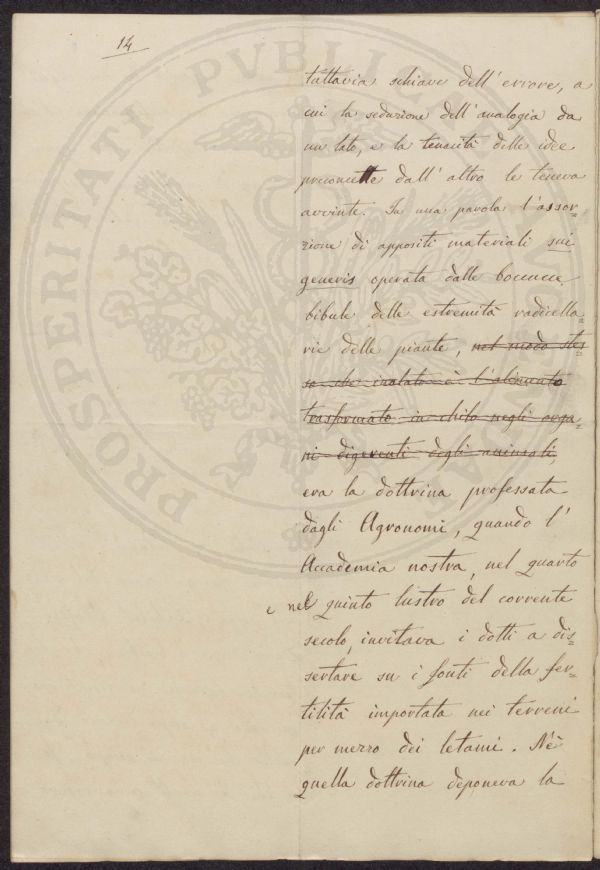 14
tuttavia schiave dell'errore, a
cui la seduzione dell'analogia da
un lato, e la tenacità delle idee
preconcette dall'altro le teneva
avvinte. In una parola l'assor-
zione di appositi materiali sui
generis operata dalle boccucce
bibule delle estremità radicella-
rie delle piante, nel modo stes
so che inalato è l'alimento
trasformato in chilo negli orga-
ni digerenti degli animali,
era la dottrina professata
dagli Agronomi, quando l'
Accademia nostra, nel quarto
e nel quinto lustro del corrente
secolo, invitava i dotti a dis-
sertare su i fonti della fer-
tilità importata nei terreni
per mezzo dei letami. Nè
quella dottrina deponeva la
PROSPERITATI PVBLICAE